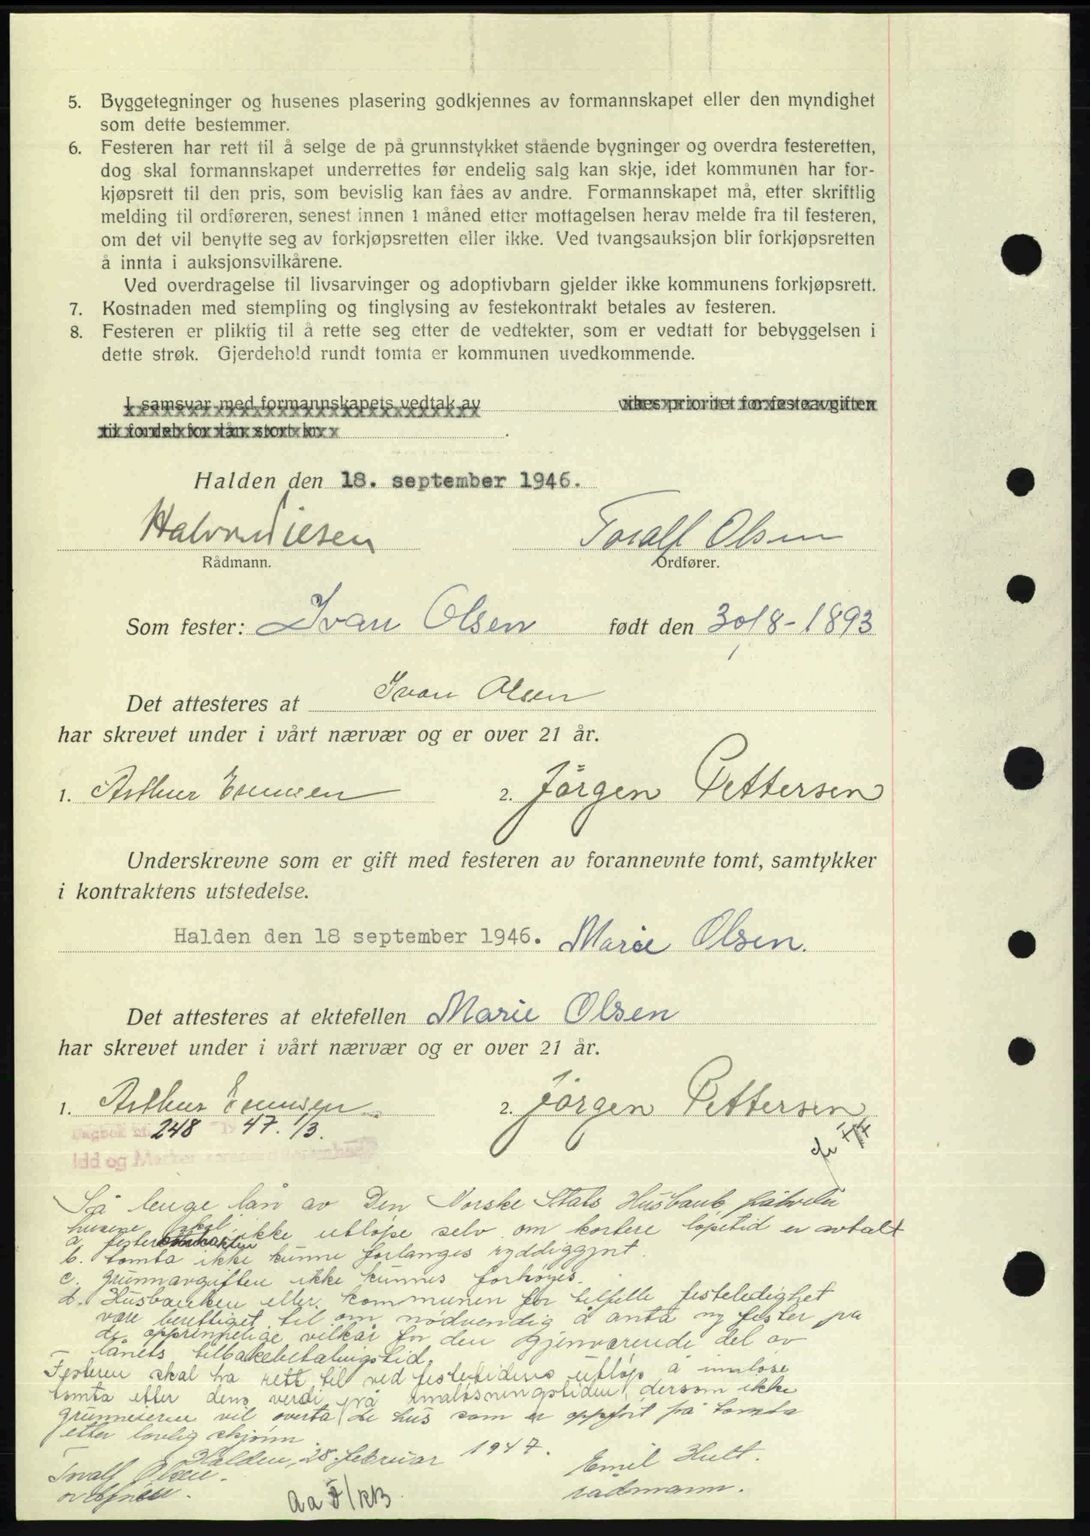 5. Byggetegninger og husenes plasering godkjennes av formannskapet eller den myndighet
som dette bestemmer.
6. Festeren har rett til å selge de på grunnstykket stående bygninger og overdra festeretten,
dog skal formannskapet underrettes før endelig salg kan skje, idet kommunen har for-
kjøpsrett til den pris, som bevislig kan fåes av andre. Formannskapet må, etter skriftlig
melding til ordføreren, senest innen 1 måned etter mottagelsen herav melde fra til festeren,
om det vil benytte seg av forkjøpsretten eller ikke. Ved tvangsauksjon blir forkjøpsretten
å innta i auksjonsvilkårene.
Ved overdragelse til livsarvinger og adoptivbarn gjelder ikke kommunens forkjøpsrett.
7. Kostnaden med stempling og tinglysing av festekontrakt betales av festeren.
8. Festeren er pliktig til å rette seg etter de vedtekter, som er vedtatt for bebyggelsen i
dette strøk. Gjerdehold rundt tomta er kommunen uvedkommende.
I samsvar med formannskapets vedtak av vikes prioritet for festeavgiften
til fordel for lån stort kr.
Halden den 18. september 1946.
Toralf Olsen
Rådmann. Ordfører.
Som fester: Ivan Olsen født den 30/8-1893
Det attesteres at Ivan Olsen
har skrevet under i vårt nærvær og er over 21 år.
1. Arthur 2. Jörgen Pettersen
Underskrevne som er gift med festeren av forannevnte tomt, samtykker
i kontraktens utstedelse.
Halden den 18 september 1946. Marie Olsen.
Det attesteres at ektefellen Marie Olsen
har skrevet under i vårt nærvær og er over 21 år.
1. Arthur 2. Jörgen Pettersen
248 47. 1/3.
Idd og Marker
Så lenge lån av Den Norske Stats Husbank påhviler
husene skal
a. ikke utløpe selv om kortere løpetid er avtalt
b. tomta ikke kunne forlanges ryddiggjort.
c. grunnavgiften ikke kunnes forhøyes.
d. Husbanken eller kommunen for tilfelle festeledighet
være berettiget til om nødvendig å anta ny fester på
de opprinnelige vilkår for den gjenværende del av
lånets tilbakebetalingstid.
Festeren skal ha rett til ved festetidens utløp å innløse
tomta efter dens verdi på innløsningstiden, dersom ikke
grunneieren vil overta de hus som er oppført på tomta
etter lovlig skjønn
Halden, 28. februar 1947.
Toralf Olsen. Emil Hult.
ordfører. rådmann.